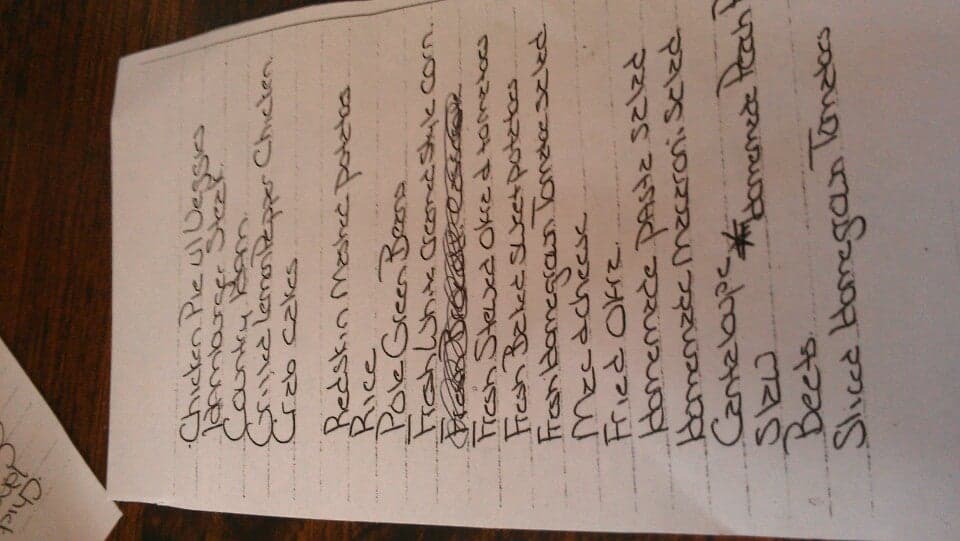 Chicken Pie w/ Veggies
Hamburger Steak
Country Ham
Grilled Lemon Pepper Chicken
Crab cakes
Redskin Mashed potatoes
Rice
Pole Green Beans
Fresh White Creamed Style Corn
Fresh Stewed Okra & tomatoes
Fresh Baked Sweet potatoes
Fresh homegrown Tomatoe salad
Mac & cheese
Fried Okra
Homemade PASta salad
Homemade Macaroni Salad
Cantaloupe * Homemade Peach
Slaw
Beets
Sliced Homegrown Tomatoes
Chick